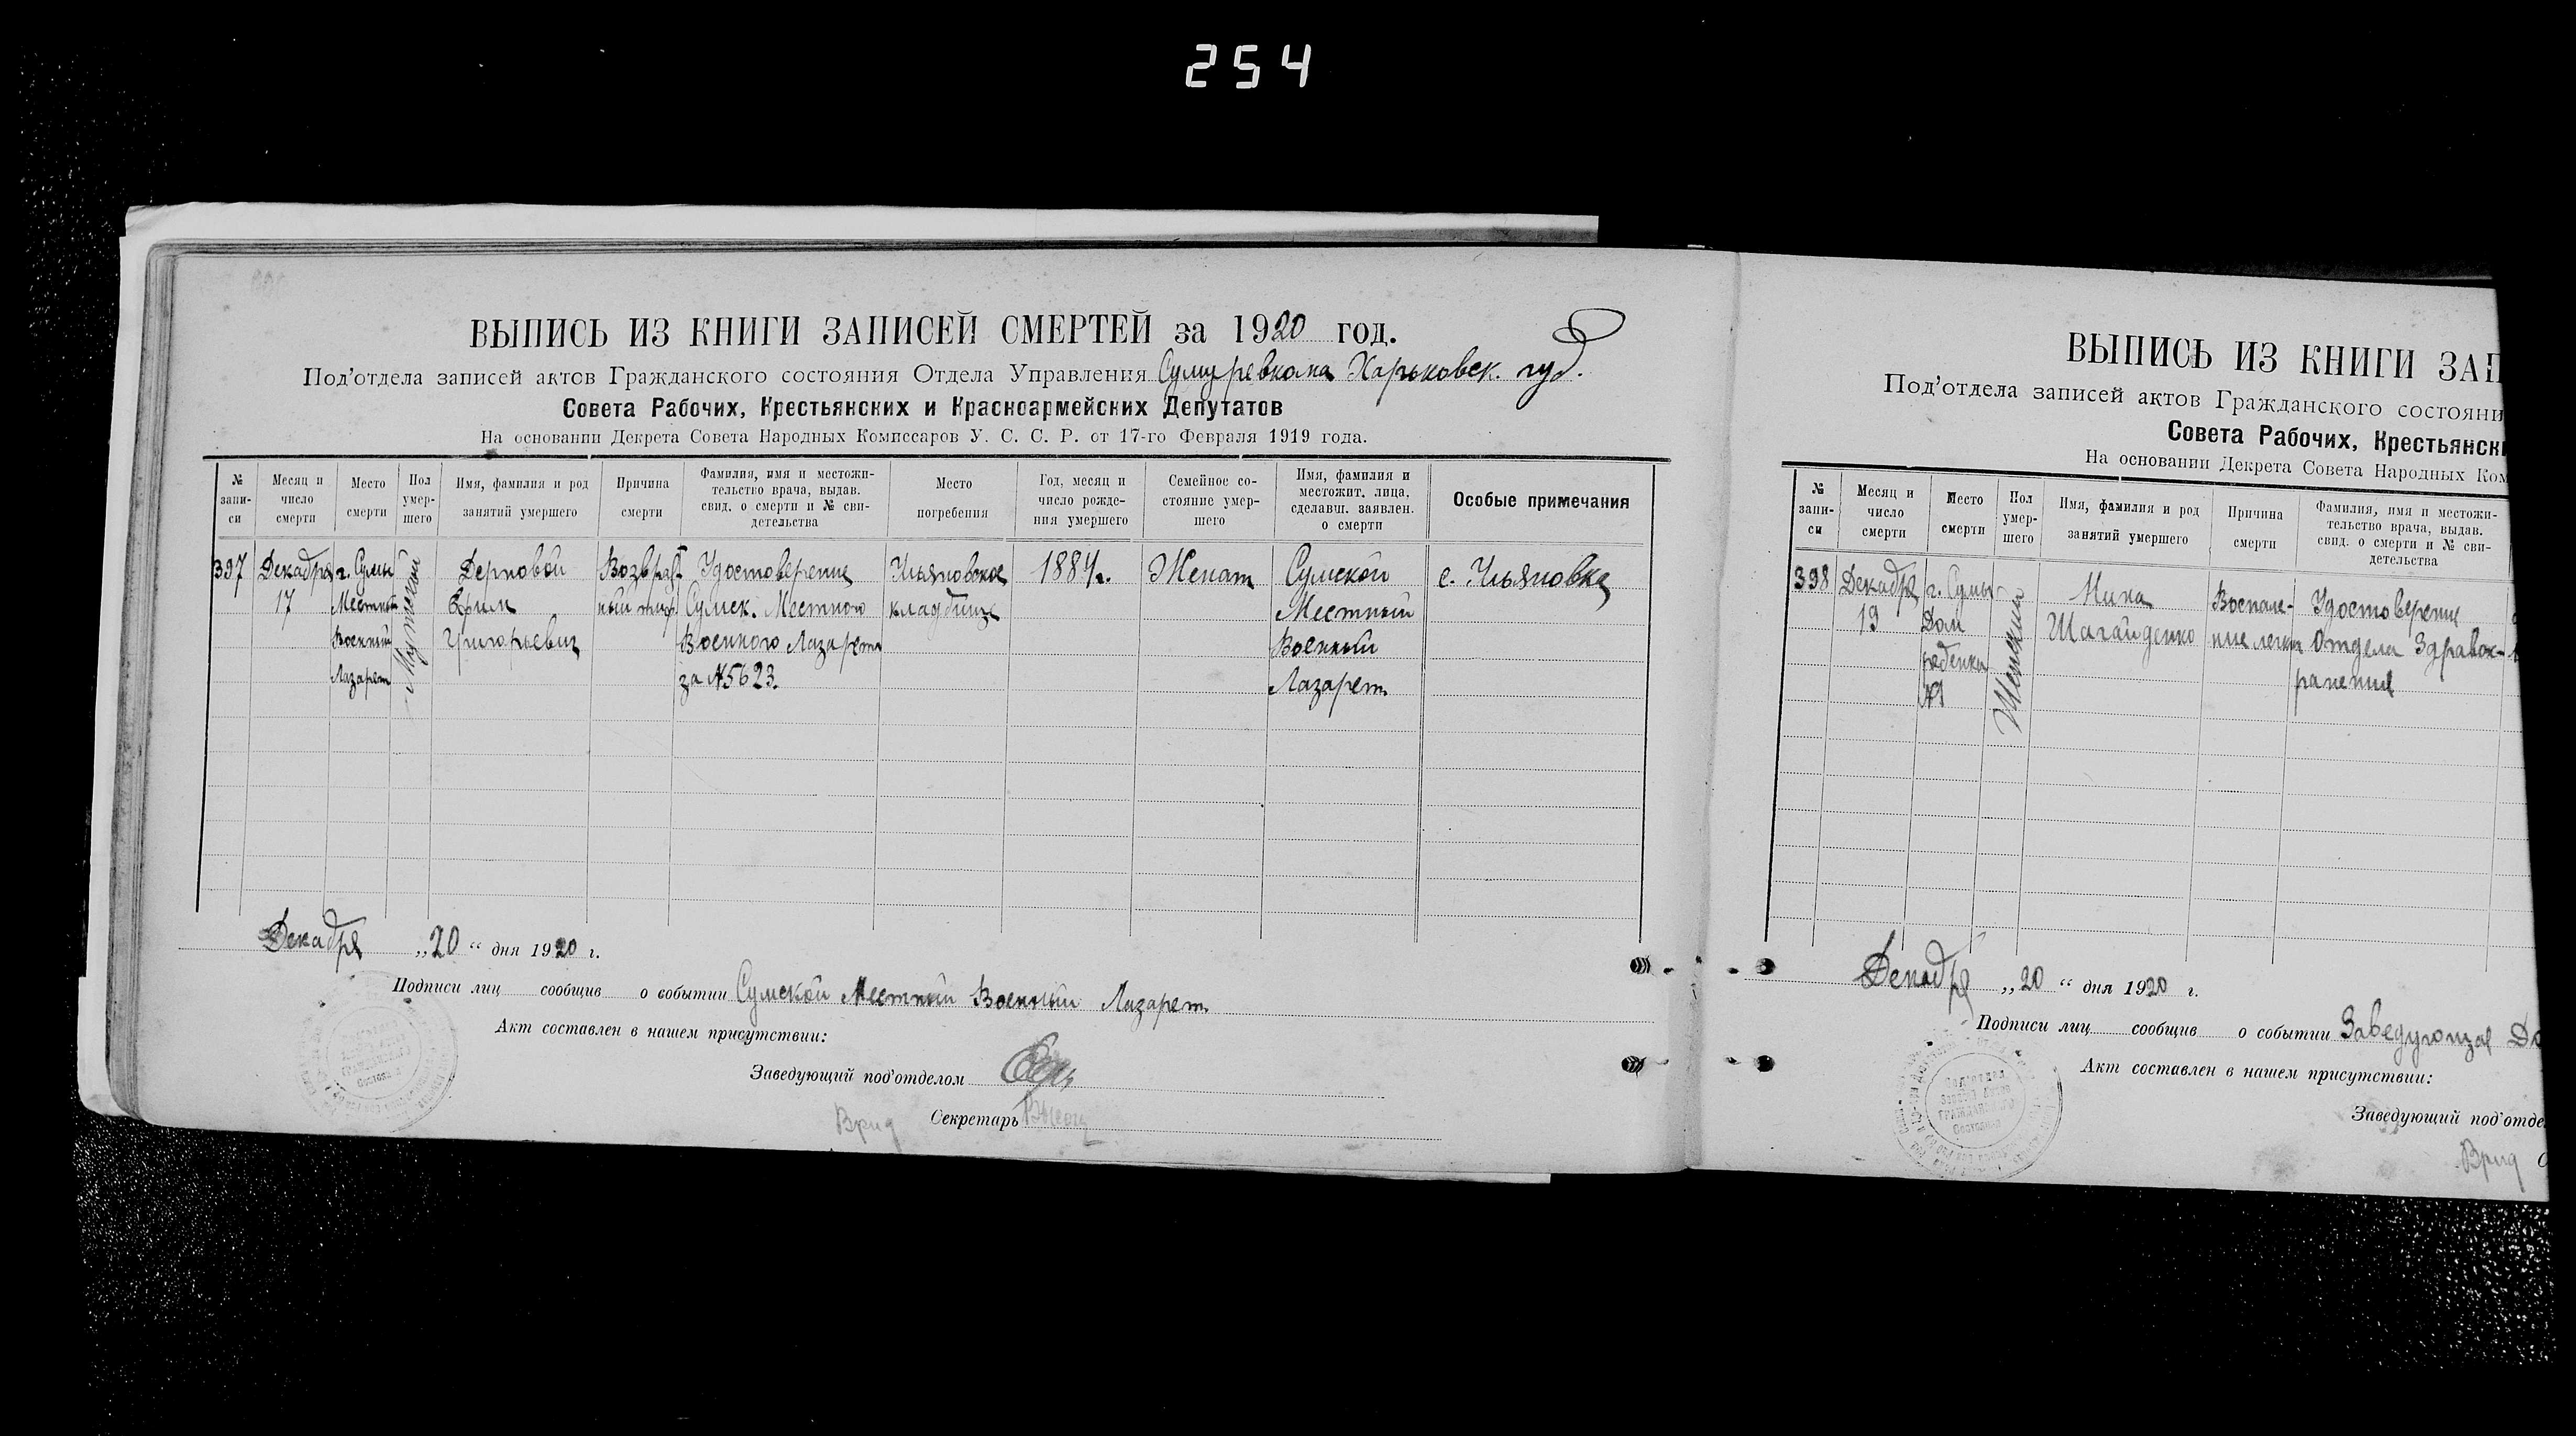 254
ВЫПИСЬ ИЗ КНИГИ ЗАПИСЕЙ СМЕРТЕЙ за 1920 год.
Под'отдела записей актов Гражданского состояния Отдела Управления Сумуревкома Харьковск. губ.
Совета Рабочих, Крестьянских и Красноармейских Депутатов
На основании Декрета Совета Народных Комиссаров У. С. С. Р. от 17-го Февраля 1919 года.
№ запи-
си
Месяц и
число
смерти
Место
смерти
Пол
умер-
шего
Имя, фамилия и род
занятий умершего
Причина
смерти
Фамилия, имя и местожи-
тельство врача, выдав.
свид. о смерти и № сви-
детельства
Место
погребения
Год, месяц и
число рожде-
ния умершего
Семейное со-
стояние умер-
шего
Имя, фамилия и
местожит. лица,
сделавш. заявлен.
о смерти
Особые примечания
397
Декабря
17
г. Сумы
Местный
Военный
Лазарет
Мужской
Дерновой
Ефим
Григорьевич
Возврат-
ный тиф
Удостоверение
Сумск. Местного
Военного Лазарета
за №5623.
Ульяновское
кладбище
1884г.
Женат
Сумской
Местный
Военный
Лазарет
с. Ульяновка
Декабря „20“ дня 1920 г.
Подписи лиц сообщив о событии Сумской Местный Военный Лазарет
Акт составлен в нашем присутствии:
Заведующий под'отделом
Врид Секретарь
ВЫПИСЬ ИЗ КНИГИ ЗАП
Под'отдела записей актов Гражданского состояни
Совета Рабочих, Крестьянск
На основании Декрета Совета Народных Ком
№ запи-
си
Месяц и
число
смерти
Место
смерти
Пол
умер-
шего
Имя, фамилия и род
занятий умершего
Причина
смерти
Фамилия, имя и местожи-
тельство врача, выдав.
свид. о смерти и № сви-
детельства
398
Декабря
19
г. Сумы
Дом
ребенка
№1
Женский
Нина
Шагайденко
Воспале-
ние легких
Удостоверение
Отдела Здравох-
ранения
Декабря „20“ дня 1920 г.
Подписи лиц сообщив о событии Заведующая До
Акт составлен в нашем присутствии:
Заведующий под'отде
Врид С